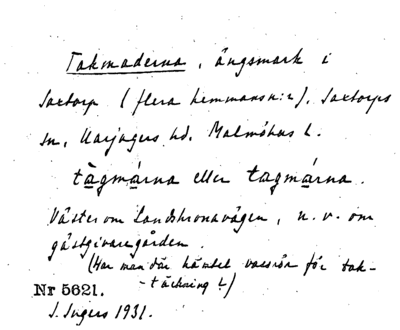 Takmaderna, ängsmark i
Saxtorp (flera hemmansn:r), Saxtorps
sn, Harjagers hd. Malmöhus l.
tàgmárna eller tagmárna.
Väster om Landskronavägen, n. v. om
gästgivaregården.
(Har man där hämtat vassrör för tak-
-täckning?)
Nr 5621.
S. Ingers 1931.